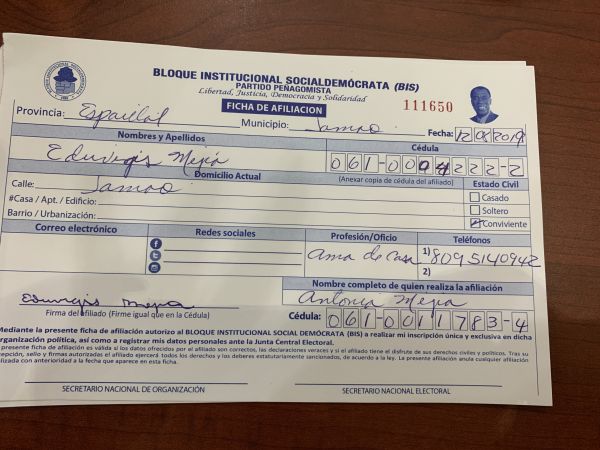 BLOQUE INSTITUCIONAL SOCIALDEMÓCRATA (BIS)
PARTIDO PEÑAGOMISTA
Libertad, Justicia, Democracia y Solidaridad
FICHA DE AFILIACION
111650
Provincia: Espaillat Municipio: Jamao Fecha: 12/08/2019
Nombres y Apellidos Cédula
Eduvigis Mejia 061-0004222-2
Domicilio Actual (Anexar copia de cédula del afiliado) Estado Civil
Calle: Jamao Casado
#Casa / Apt. / Edificio: Soltero
Barrio / Urbanización: Conviviente
Correo electrónico Redes sociales Profesión/Oficio Teléfonos
Ama de casa 1) 8095140942
2)
Nombre completo de quien realiza la afiliación
Eduvigis Mejia Antonia Mejia
Firma del afiliado (Firme igual que en la Cédula) Cédula: 061-0011783-4
Mediante la presente ficha de afiliación autorizo al BLOQUE INSTITUCIONAL SOCIAL DEMÓCRATA (BIS) a realizar mi inscripción única y exclusiva en dicha
organización política, así como a registrar mis datos personales ante la Junta Central Electoral.
presente ficha de afiliación es válida si los datos ofrecidos por el afiliado son correctos, las declaraciones veraces y si el afiliado tiene el disfrute de sus derechos civiles y políticos. Tras su
recepción, sello y firmas autorizadas el afiliado ejercerá todos los derechos y los deberes estatutariamente sancionados, de acuerdo a la ley. La presente afiliación anula cualquier afiliación
realizada con anterioridad a la fecha que aparece en esta ficha.
SECRETARIO NACIONAL DE ORGANIZACIÓN SECRETARIO NACIONAL ELECTORAL